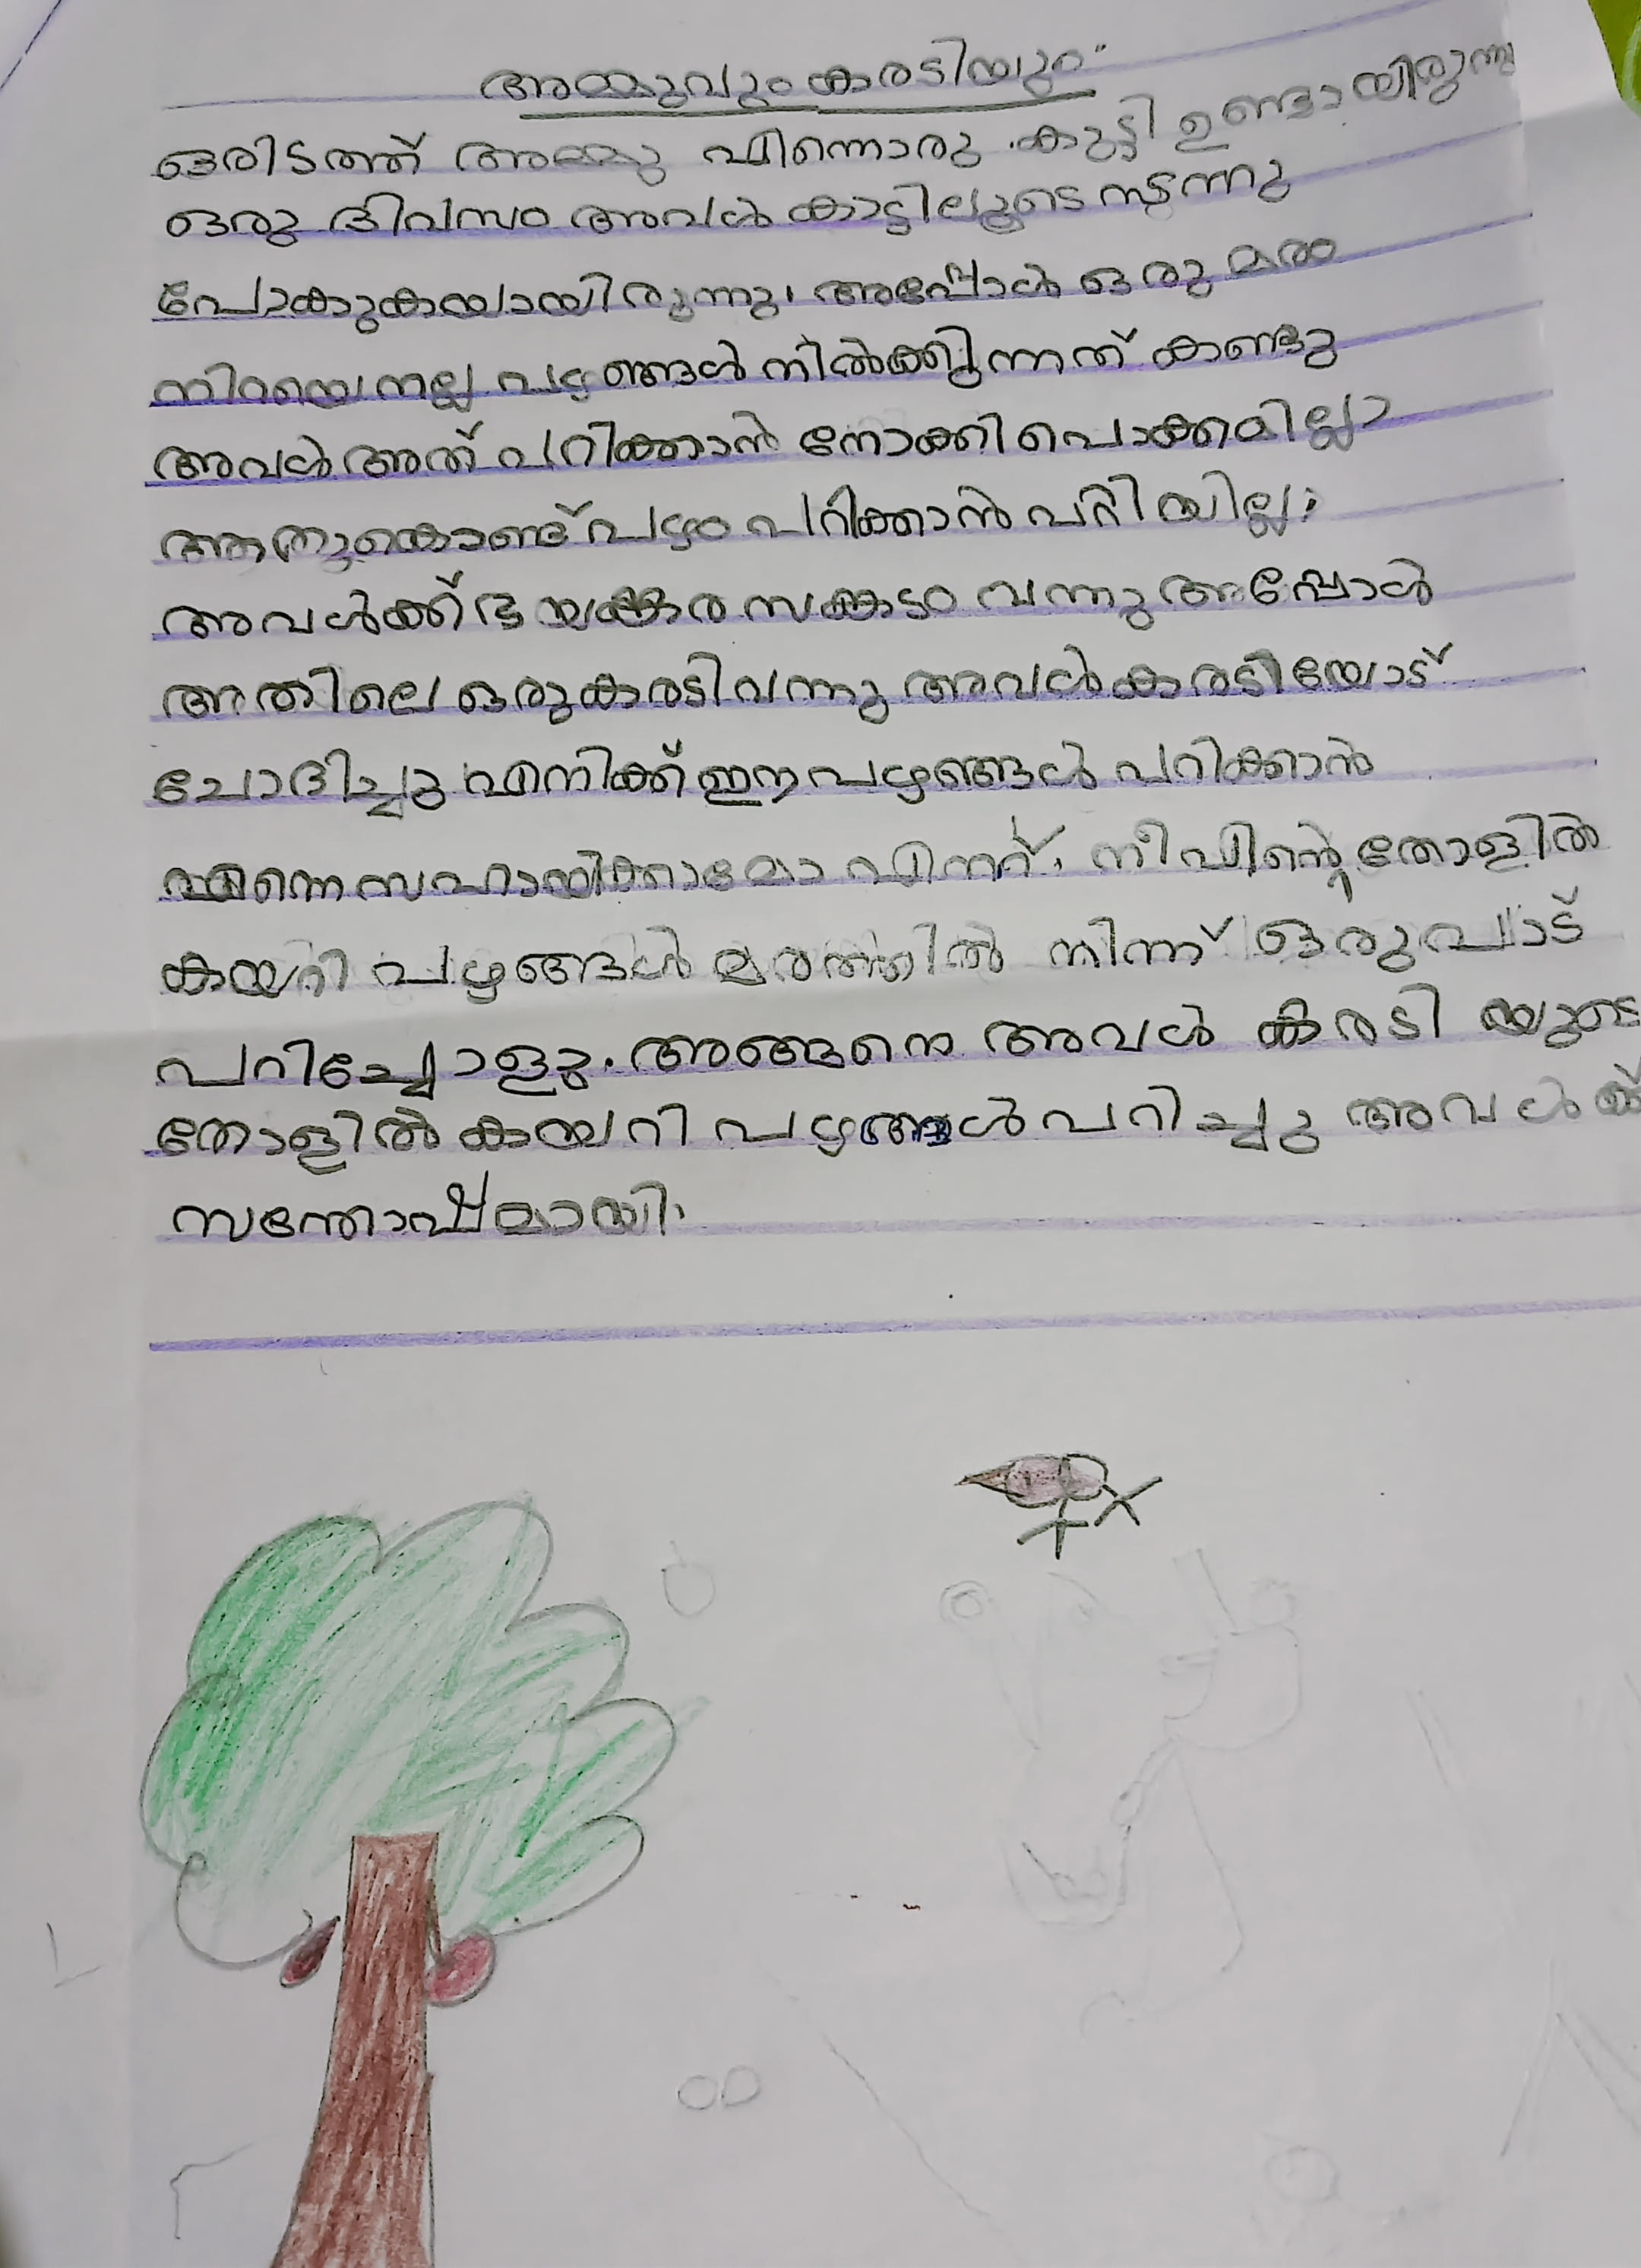 അമ്മുവും കരടിയും
ഒരിടത്ത് അമ്മു എന്നൊരു കുട്ടി ഉണ്ടായിരുന്നു
ഒരു ദിവസം അവൾ കാട്ടിലൂടെ നടന്നു
പോകുകയായിരുന്നു. അപ്പോൾ ഒരു മരം
നിറയെ നല്ല പഴങ്ങൾ നിൽക്കുന്നത് കണ്ടു
അവൾ അത് പറിക്കാൻ നോക്കി പൊക്കമില്ലാ
അതുകൊണ്ട് പഴം പറിക്കാൻ പറ്റിയില്ല,
അവൾക്ക് ഭയങ്കര സങ്കടം വന്നു അപ്പോൾ
അതിലെ ഒരു കരടി വന്നു അവൾ കരടിയോട്
ചോദിച്ചു എനിക്ക് ഈ പഴങ്ങൾ പറിക്കാൻ
എന്നെ സഹായിക്കാമോ എന്ന്. നീ എൻ്റെ തോളിൽ
കയറി പഴങ്ങൾ മരത്തിൽ നിന്ന് ഒരുപാട്
പറിച്ചോളൂ. അങ്ങനെ അവൾ കരടി യുടെ
തോളിൽ കയറി പഴങ്ങൾ പറിച്ചു അവൾക്ക്
സന്തോഷമായി.